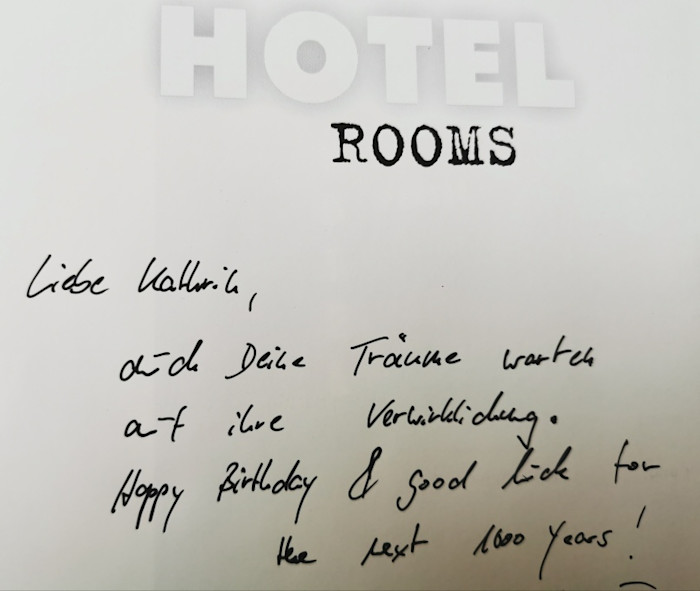 HOTEL
ROOMS
Liebe Kathrin,
auch Deine Träume warten
auf ihre Verwirklichung.
Happy Birthday & good luck for
the next 1000 Years!